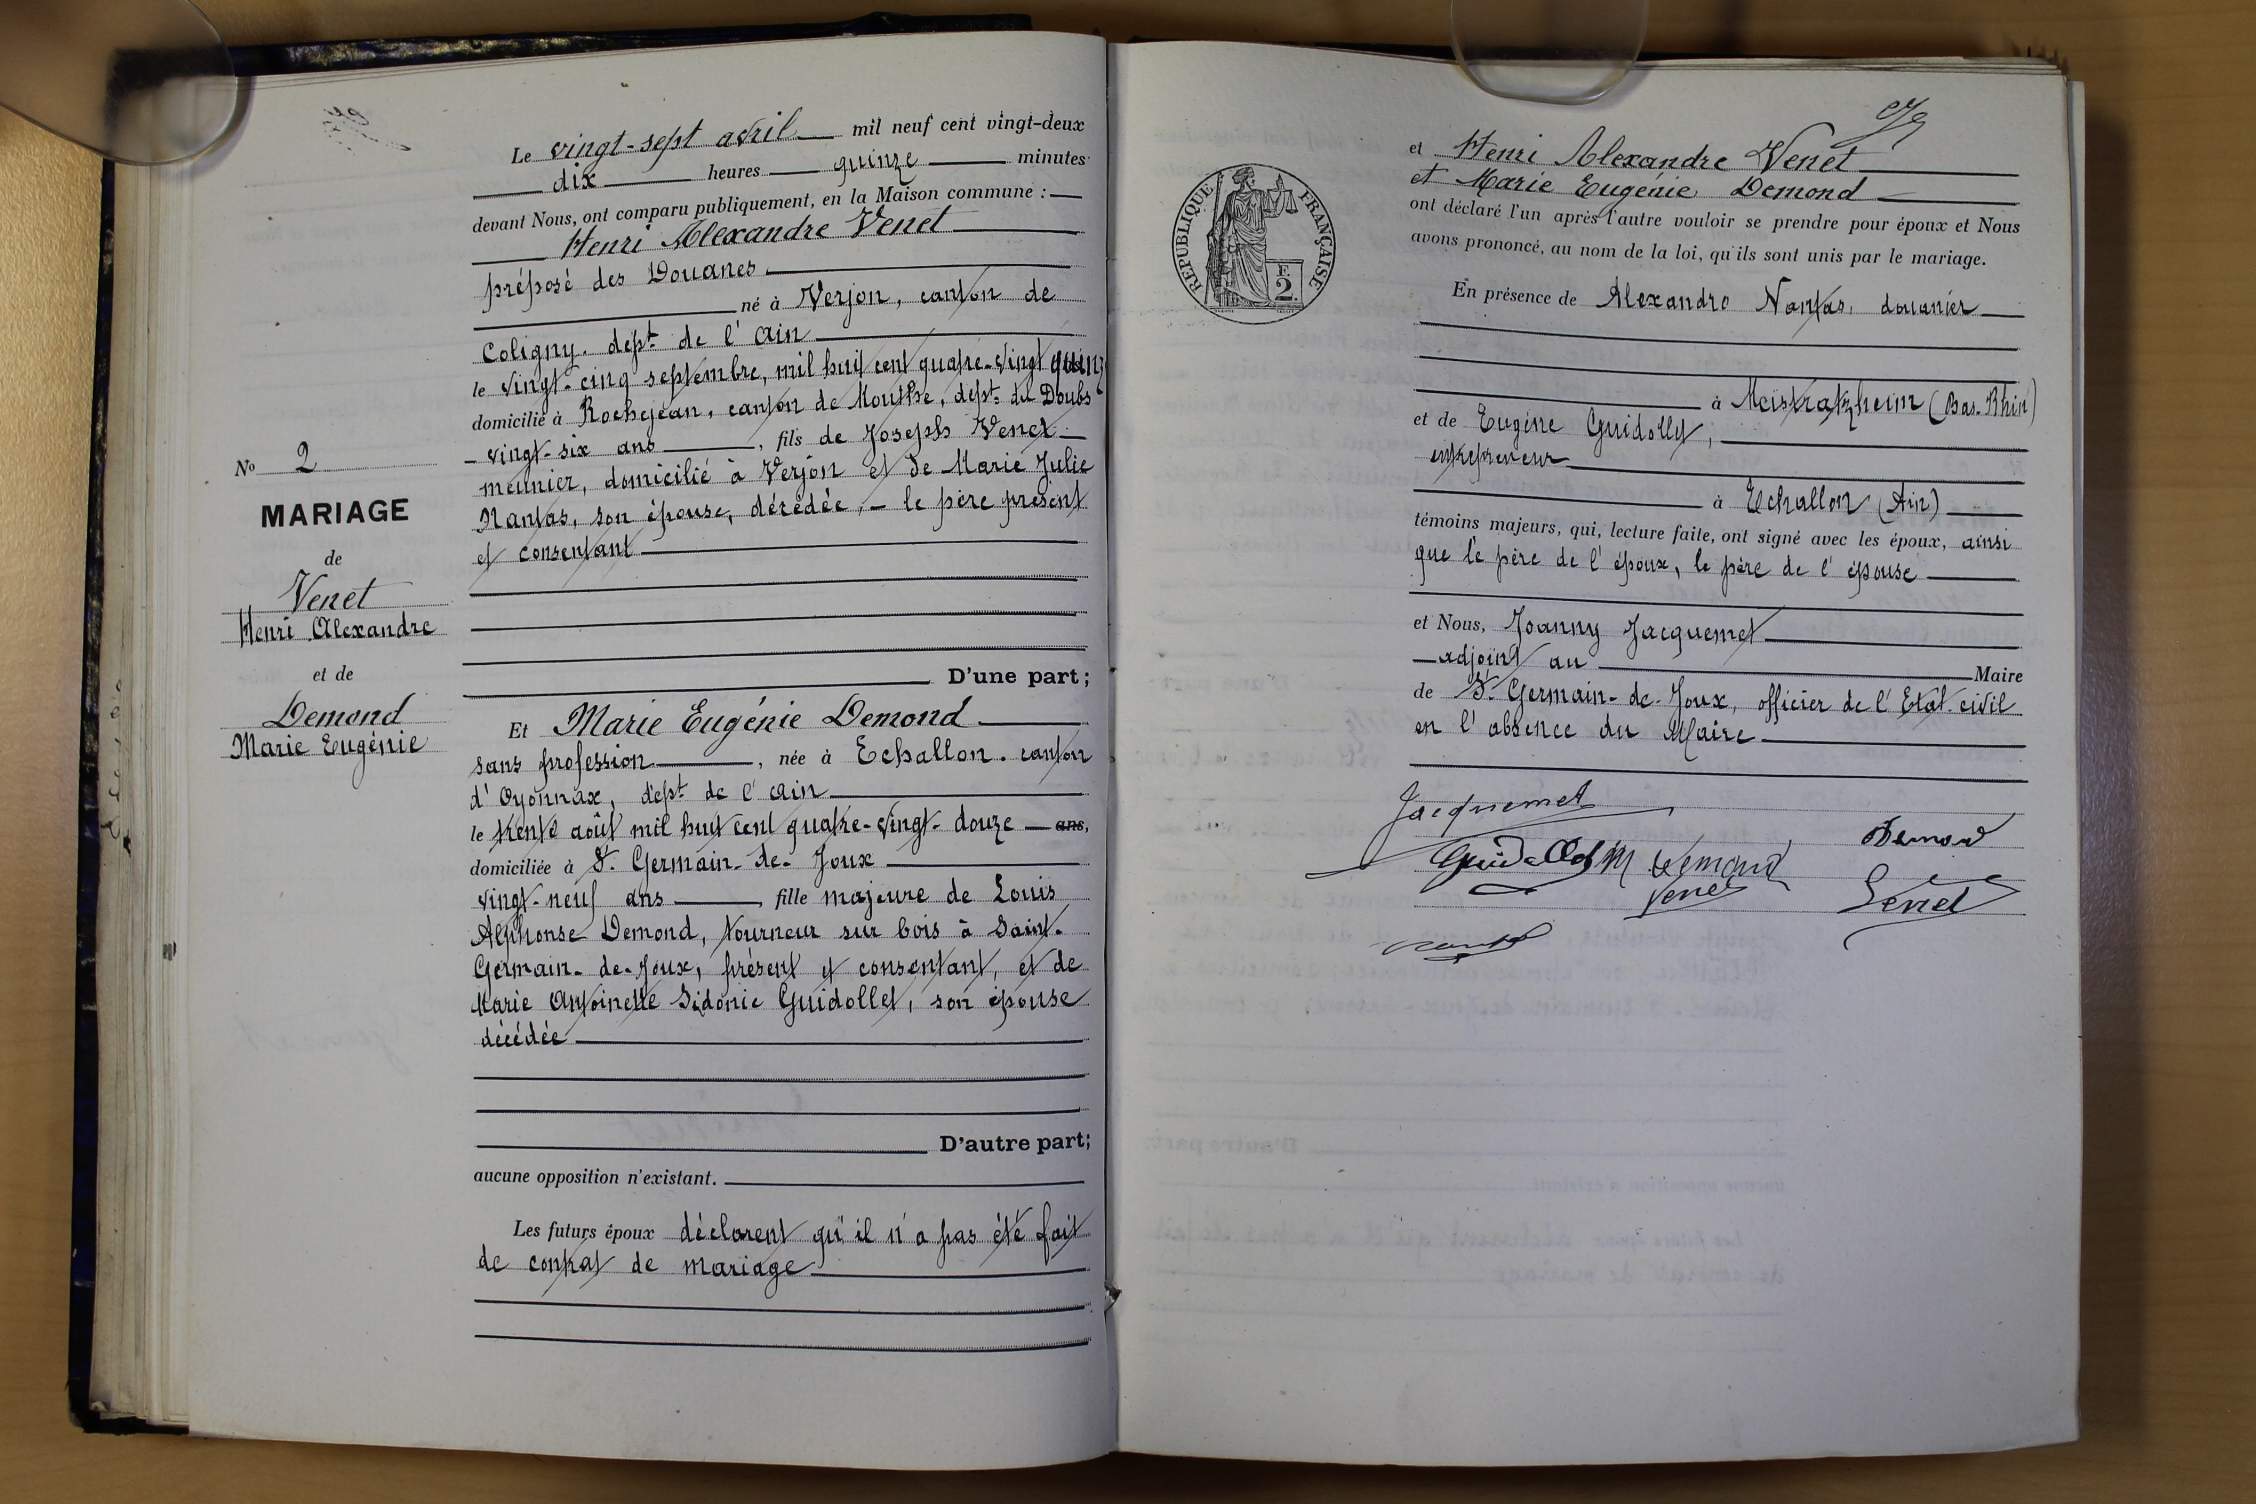 Le vingt-sept avril mil neuf cent vingt-deux
dix heures quinze minutes
devant Nous, ont comparu publiquement, en la Maison commune :
Henri Alexandre Venet
préposé des Douanes
né à Verjon, canton de
Coligny. dept. de l'Ain
le vingt-cinq septembre, mil huit cent quatre-vingt quinz
domicilié à Rochejean, canton de Mouthe, dept. du Doubs
vingt-six ans, fils de Joseph Venet
meunier, domicilié à Verjon et de Marie Julie
Nantas, son épouse, décédée, - le père présent
et consentant
D'une part ;
No 2
MARIAGE
de
Venet
Henri Alexandre
et de
Demond
Marie Eugénie
Et Marie Eugénie Demond
sans profession, née à Echallon. canton
d'Oyonnax, dept. de l'ain
le trente août mil huit cent quatre-vingt-douze ans,
domiciliée à St. Germain-de-Joux
vingt-neuf ans, fille majeure de Louis
Alphonse Demond, tourneur sur bois à Saint-
Germain-de-Joux, présent et consentant, et de
Marie Antoinette Sidonie Guidollet, son épouse
décédée
D'autre part;
aucune opposition n'existant.
Les futurs époux déclarent qu'il n'a pas été fait
de contrat de mariage
RÉPUBLIQUE FRANÇAISE
F.
2.
et Henri Alexandre Venet
et Marie Eugénie Demond
ont déclaré l'un après l'autre vouloir se prendre pour époux et Nous
avons prononcé, au nom de la loi, qu'ils sont unis par le mariage.
En présence de Alexandre Nantas, douanier
à Meistratzheim (Bas-Rhin)
et de Eugène Guidollet,
entrepreneur
à Echallon (Ain)
témoins majeurs, qui, lecture faite, ont signé avec les époux, ainsi
que le père de l'époux, le père de l'épouse
et Nous, Joanny Jacquemet
adjoint au Maire
de St. Germain-de-Joux, officier de l'Etat-civil
en l'absence du Maire
Jacquemet
Demond
Guidollet M Demond
Venet
Venet